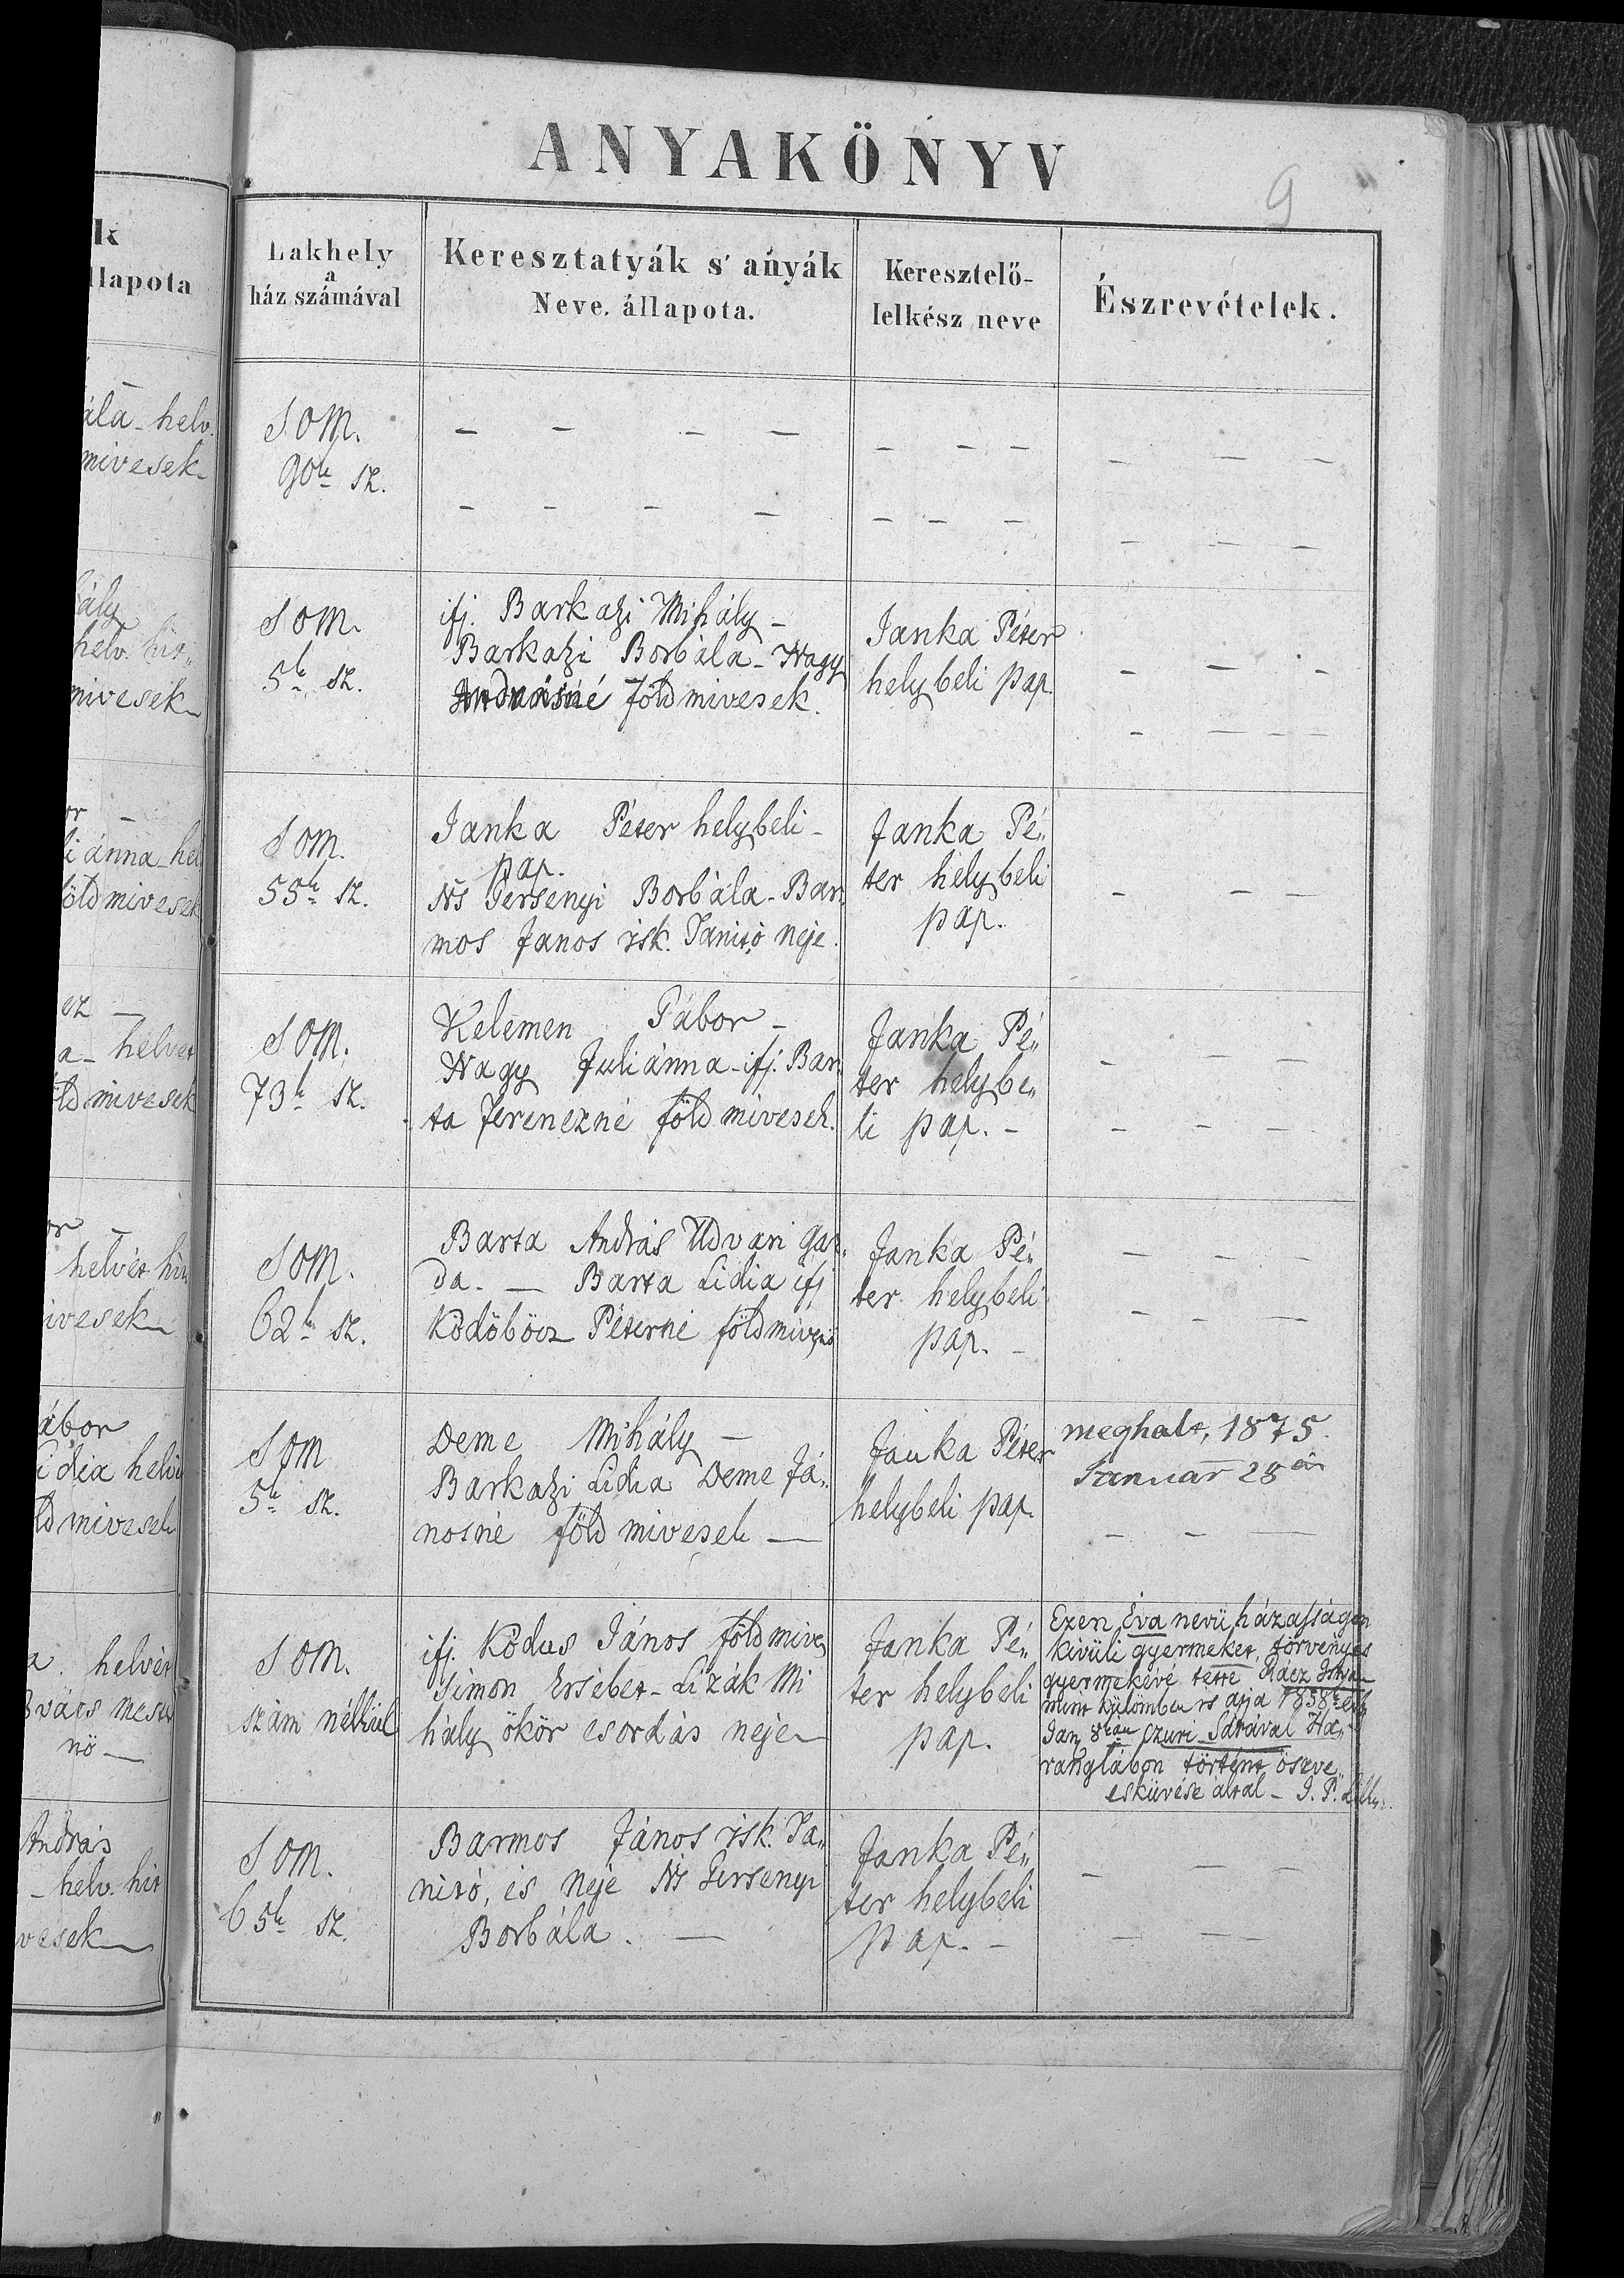 ANYAKÖNYV
9
k
llapota
Lakhely
a
ház számával
Keresztatyák s' anyák
Neve, állapota.
Keresztelő-
lelkész neve
Észrevételek.
ála - helv.
mivesek
SOM.
90ik sz.
ály
helv. hit„
mivesek
SOM.
5ik sz.
ifj. Barkaszi Mihály -
Barkaszi Borbála - Nagy
Andrásné földmivesek.
Janka Péter
helybeli pap.
or -
iánna - hel
földmivesek
SOM.
55ik sz.
Janka Péter helybeli -
pap.
Ns Gersenyi Borbála - Bar„
mos Janos isk. Tanitó neje.
Janka Pé„
ter helybeli
pap.
ez -
a - helvet
ldmivesek
SOM.
73ik sz.
Kelemen Gábor -
Nagy Juliánna - ifj. Bar„
ta Ferenczné földmivesek.
Janka Pé„
ter helybe„
li pap. -
or -
helvét hi
ivesek
SOM.
62ik sz.
Barta András Udvari gaz„
da. — Barta Lidia ifj
Ködöböcz Péterné földmivesnö
Janka Pé„
ter helybeli
pap. -
ábor
idia helv
ldmivesek
SOM
5ik sz.
Deme Mihály —
Barkaszi Lidia Deme Já„
nosné földmivesek —
Janka Péter
helybeli pap.
meghalt, 1875.
Januar 28án
a. helvét
vács mes
nö —
SOM.
szám nélkül
ifj. Ködus János földmives
Simon Ersébet - Lizák Mi
hály ökör csordás neje
Janka Pé„
ter helybeli
pap.
Ezen Éva nevü házasságon
kivüli gyermeket, törvenyes
gyermekévé tette Rácz István
mint külömben is atja 1858ik
Jan 8kán Szuri Sárával Ha„
ranglábon történt öszve
esküvése által - J. P.
András
- helv. hit
vesek
SOM.
65ik sz.
Barmos János isk. Ta„
nitó, és Neje Ns Gersenyi
Borbála. —
Janka Pé„
ter helybeli
pap. -